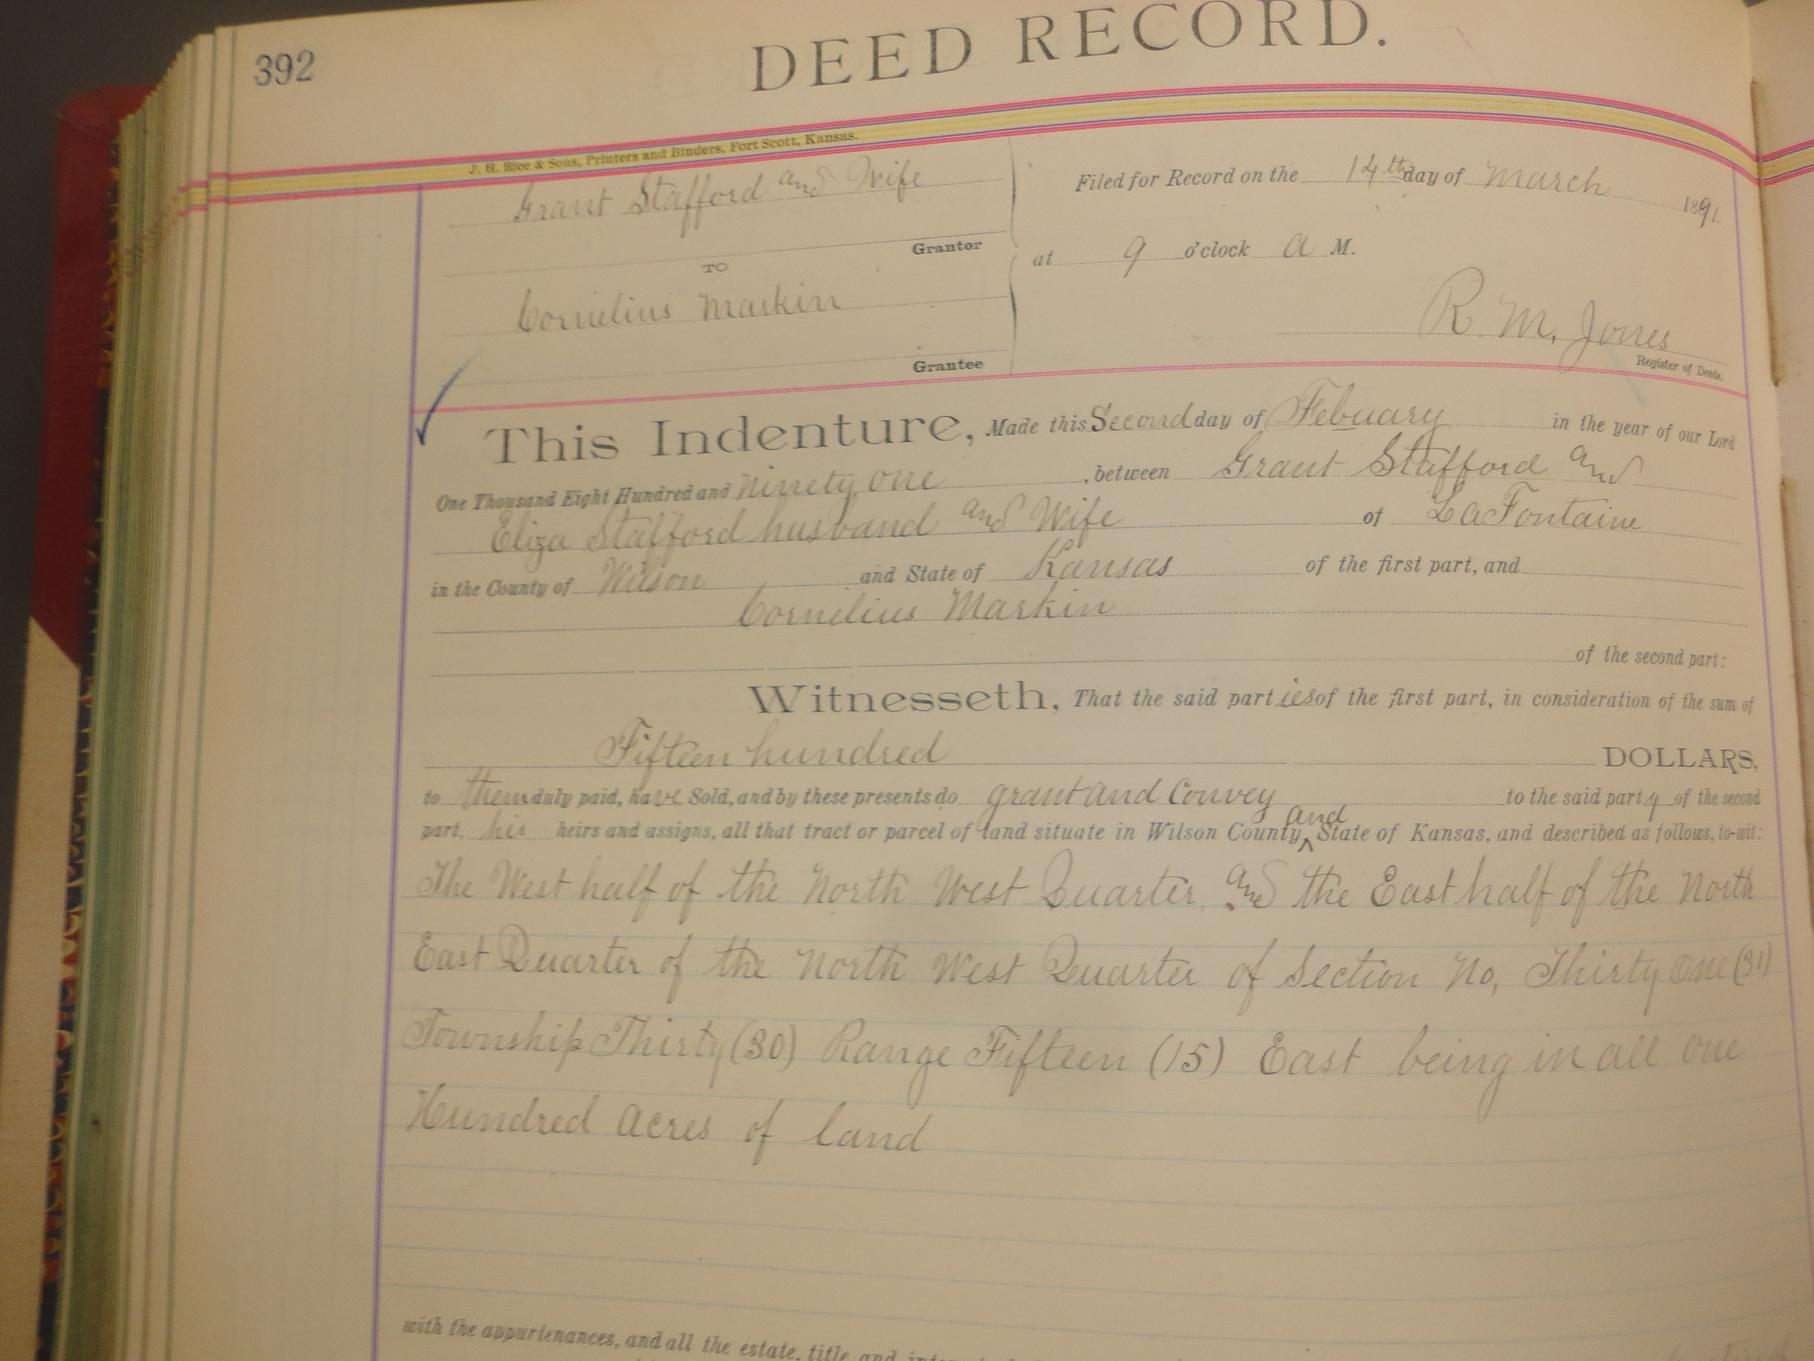 392
DEED RECORD.
J. H. Rice & Sons, Printers and Binders, Fort Scott, Kansas.
Grant Stafford and Wife
Grantor
TO
Cornelius Markin
Grantee
Filed for Record on the 14th day of March 1891
at 9 o'clock A M.
R. M. Jones
Register of Deeds.
This Indenture, Made this Second day of Febuary in the year of our Lord
One Thousand Eight Hundred and Ninety one, between Grant Stafford and
Eliza Stafford husband and Wife of LaFontaine
in the County of Wilson and State of Kansas of the first part, and
Cornelius Markin
of the second part:
Witnesseth, That the said parties of the first part, in consideration of the sum of
Fifteen hundred DOLLARS,
to them duly paid, have Sold, and by these presents do grant and Convey to the said party of the second
part, his heirs and assigns, all that tract or parcel of land situate in Wilson County, and State of Kansas, and described as follows, to-wit:
The West half of the North West Quarter and the East half of the North
East Quarter of the North West Quarter of Section No, Thirty One (31)
Township Thirty (30) Range Fifteen (15) East being in all one
Hundred acres of land
with the appurtenances, and all the estate, title and